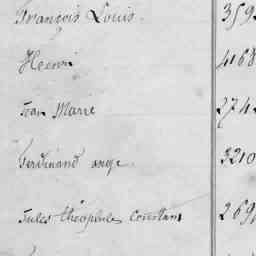 François Louis. 359
Henri 4168
Jean Marie 274
Ferdinand ange 3210
Jules théophile Constant 269